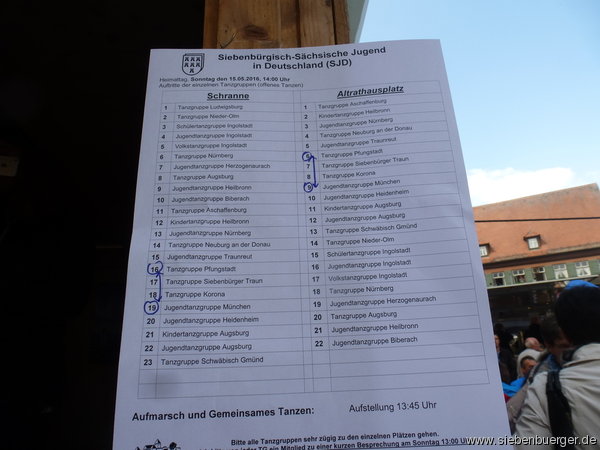 Siebenbürgisch-Sächsische Jugend
in Deutschland (SJD)
Heimattag, Sonntag den 15.05.2016, 14:00 Uhr
Auftritte der einzelnen Tanzgruppen (offenes Tanzen)
Schranne
1 Tanzgruppe Ludwigsburg
2 Tanzgruppe Nieder-Olm
3 Schülertanzgruppe Ingolstadt
4 Jugendtanzgruppe Ingolstadt
5 Volkstanzgruppe Ingolstadt
6 Tanzgruppe Nürnberg
7 Jugendtanzgruppe Herzogenaurach
8 Tanzgruppe Augsburg
9 Jugendtanzgruppe Heilbronn
10 Jugendtanzgruppe Biberach
11 Tanzgruppe Aschaffenburg
12 Kindertanzgruppe Heilbronn
13 Jugendtanzgruppe Nürnberg
14 Tanzgruppe Neuburg an der Donau
15 Jugendtanzgruppe Traunreut
16 Tanzgruppe Pfungstadt
17 Tanzgruppe Siebenbürger Traun
18 Tanzgruppe Korona
19 Jugendtanzgruppe München
20 Jugendtanzgruppe Heidenheim
21 Kindertanzgruppe Augsburg
22 Jugendtanzgruppe Augsburg
23 Tanzgruppe Schwäbisch Gmünd
Altrathausplatz
1 Tanzgruppe Aschaffenburg
2 Kindertanzgruppe Heilbronn
3 Jugendtanzgruppe Nürnberg
4 Tanzgruppe Neuburg an der Donau
5 Jugendtanzgruppe Traunreut
6 Tanzgruppe Pfungstadt
7 Tanzgruppe Siebenbürger Traun
8 Tanzgruppe Korona
9 Jugendtanzgruppe München
10 Jugendtanzgruppe Heidenheim
11 Kindertanzgruppe Augsburg
12 Jugendtanzgruppe Augsburg
13 Tanzgruppe Schwäbisch Gmünd
14 Tanzgruppe Nieder-Olm
15 Schülertanzgruppe Ingolstadt
16 Jugendtanzgruppe Ingolstadt
17 Volkstanzgruppe Ingolstadt
18 Tanzgruppe Nürnberg
19 Jugendtanzgruppe Herzogenaurach
20 Tanzgruppe Augsburg
21 Jugendtanzgruppe Heilbronn
22 Jugendtanzgruppe Biberach
Aufmarsch und Gemeinsames Tanzen: Aufstellung 13:45 Uhr
Bitte alle Tanzgruppen sehr zügig zu den einzelnen Plätzen gehen.
jeder TG ein Mitglied zu einer kurzen Besprechung am Sonntag 13:00
www.siebenbuerger.de